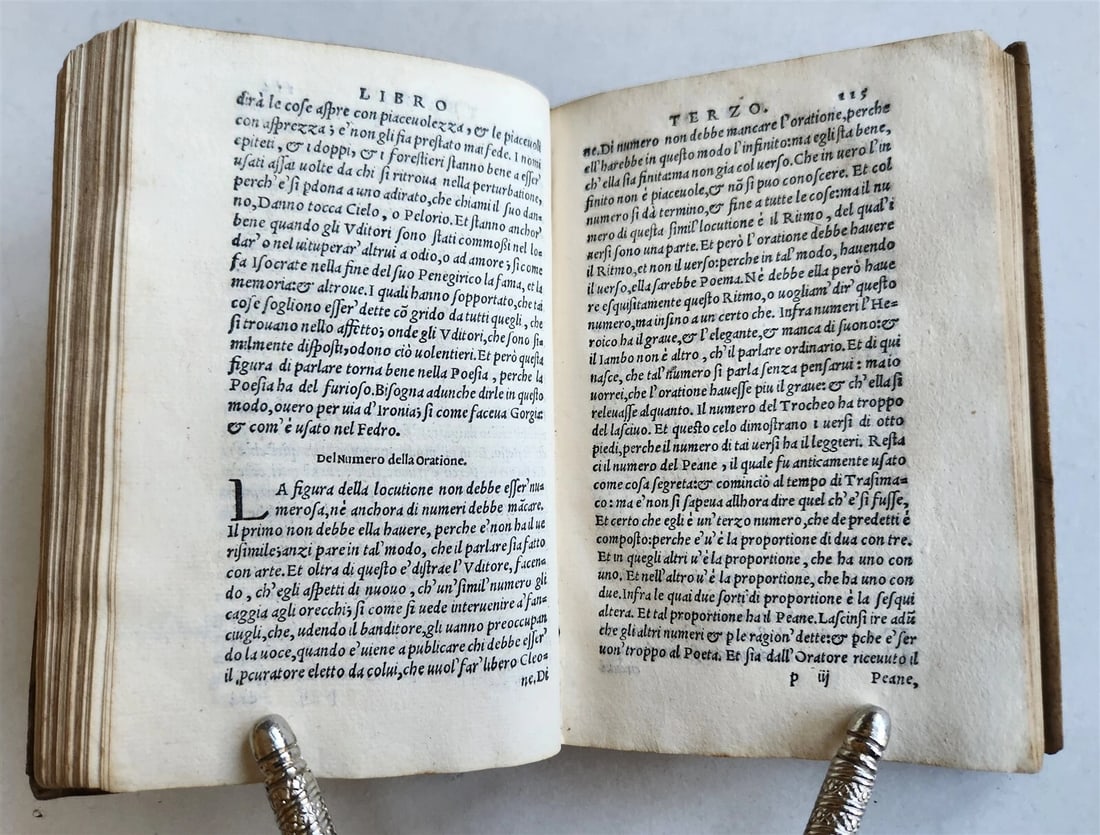 LIBRO
dirà le cose aspre con piaceuolezza, & le piaceuoli
con asprezza; e' non gli fia prestato mai fede. I nomi
epiteti, & i doppi, & i forestieri stanno bene a esser'
usati assai uolte da chi si ritroua nella perturbatione,
perch' e' si pdona a uno adirato, che chiami il suo dan-
no, Danno tocca Cielo, o Pelorio. Et stanno anchor'
bene quando gli Vditori sono stati commoßi nel lo-
dar' o nel uituperar' altrui a odio, o ad amore; si come
fa Isocrate nella fine del suo Penegirico la fama, et la
memoria: & altroue. I quali hanno sopportato, che tai
cose sogliono esser' dette cõ grido da tutti quegli, che
si trouano nello affetto; onde gli Vditori, che sono si=
milmente disposti, odono ciò uolentieri. Et però questa
figura di parlare torna bene nella Poesia, perche la
Poesia ha del furioso. Bisogna adunche dirle in questo
modo, ouero per uia d'Ironia; si come faceua Gorgia:
& com' è usato nel Fedro.
Del Numero della Oratione.
LA figura della locutione non debbe esser' nu=
merosa, nè anchora di numeri debbe mãcare.
Il primo non debbe ella hauere, perche e' non ha il ue
risimile; anzi pare in tal' modo, che il parlare sia fatto
con arte. Et oltra di questo e' distrae l'Vditore, facen=
do, ch' egli aspetti di nuouo, ch' un' simil' numero gli
caggia agli orecchi; si come si uede interuenire a' fan=
ciugli, che, udendo il banditore, gli uanno preoccupan
do la uoce, quando e' uiene a publicare chi debbe esser'
il pcuratore eletto da colui, che uuol' far' libero Cleo=
ne. Di
TERZO. 115
ne. Di numero non debbe mancare l'oratione, perche
ell' harebbe in questo modo l'infinito: ma egli sta bene,
ch' ella sia finita: ma non gia col uerso. Che in uero l'in
finito non è piaceuole, & nõ si puo conoscere. Et col
numero si dà termine, & fine a tutte le cose: ma il nu
mero di questa simil' locutione è il Ritmo, del qual' i
uersi sono una parte. Et però l'oratione debbe hauere
il Ritmo, et non il uerso: perche in tal' modo, hauendo
il uerso, ella sarebbe Poema. Nè debbe ella però haue
re esquisitamente questo Ritmo, o uogliam' dir' questo
numero, ma insino a un certo che. Infra numeri l'He=
roico ha il graue, & l'elegante, & manca di suono: &
il Iambo non è altro, ch' il parlare ordinario. Et di qui
nasce, che tal' numero si parla senza pensarui: ma io
uorrei, che l'oratione hauesse piu il graue: & ch' ella si
releuasse alquanto. Il numero del Trocheo ha troppo
del lasciuo. Et questo celo dimostrano i uersi di otto
piedi, perche il numero di tai uersi ha il leggieri. Resta
ci il numero del Peane, il quale fu anticamente usato
come cosa segreta: & cominciò al tempo di Trasima=
co: ma e' non si sapeua allhora dire quel ch' e' si fusse,
Et certo che egli è un' terzo numero, che de predetti è
composto: perche e' u' è la proportione di dua con tre.
Et in quegli altri u' è la proportione, che ha uno con
uno. Et nell' altro u' è la proportione, che ha uno con
due. Infra le quai due sorti di proportione è la sesqui
altera. Et tal proportione ha il Peane. Lascinsi ire adũ
che gli altri numeri & p le ragion' dette: & pche e' ser
uon' troppo al Poeta. Et sia dall' Oratore riceuuto il
p iij Peane,